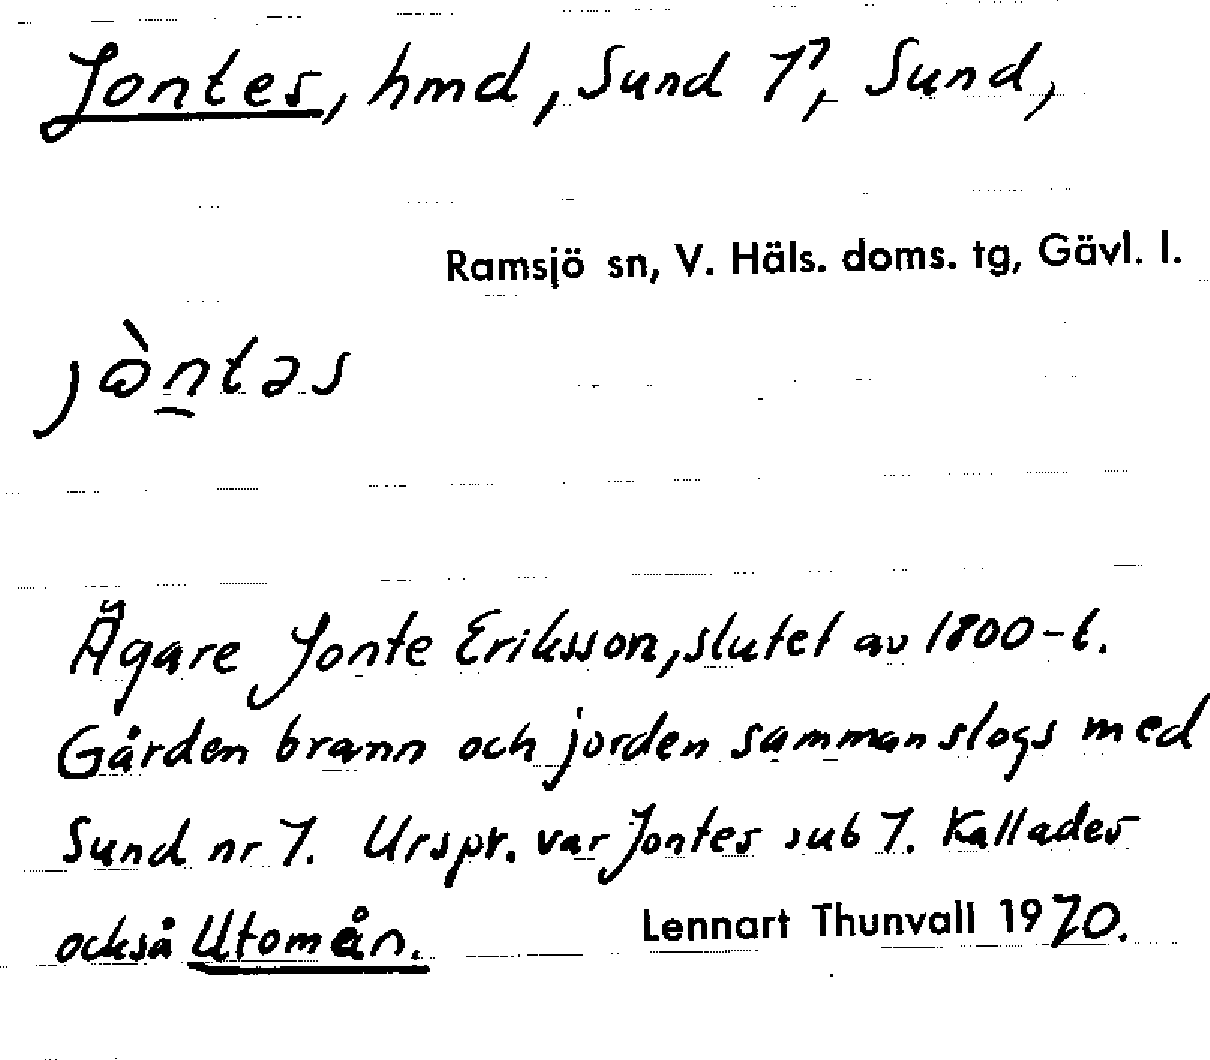 Jontes, hmd, Sund 1⁷, Sund,
Ramsjö sn, V. Häls. doms. tg, Gävl. l.
jòntəs
Ägare Jonte Eriksson, slutet av 1800-t.
Gården brann och jorden sammanslogs med
Sund nr 7. Urspr. var Jontes sub 7. Kallades
också Utomån.
Lennart Thunvall 1970.